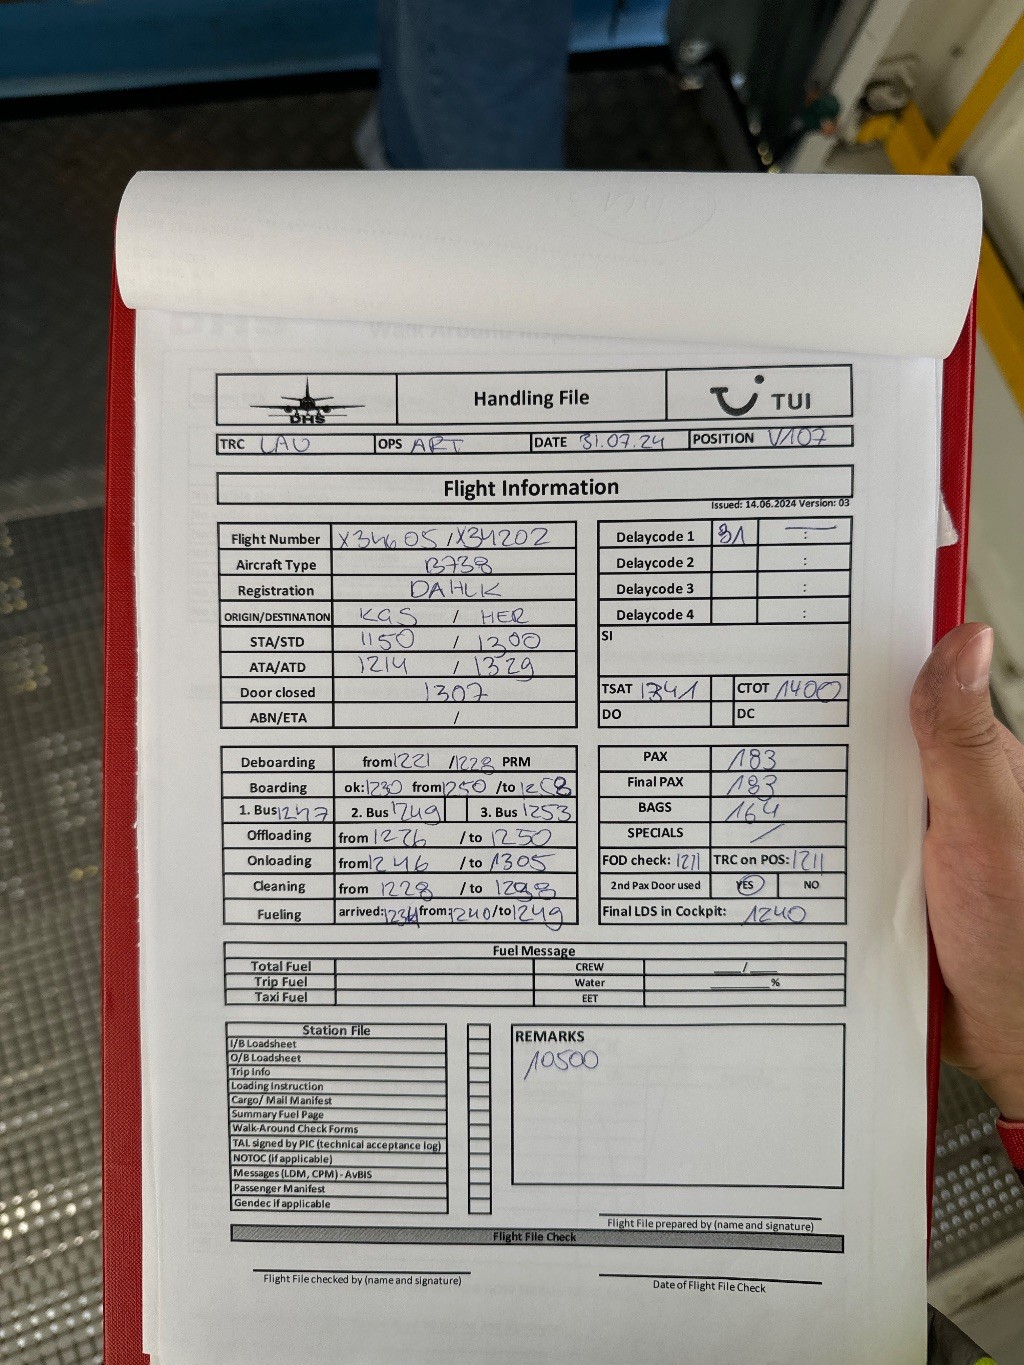 DHS
Handling File
TUI
TRC LAU OPS ART DATE 31.07.24 POSITION V107
Flight Information
Issued: 14.06.2024 Version: 03
Flight Number X34605 / X34202
Aircraft Type B738
Registration DAHLK
ORIGIN/DESTINATION KGS / HER
STA/STD 1150 / 1300
ATA/ATD 1214 / 1329
Door closed 1307
ABN/ETA /
Delaycode 1 :
Delaycode 2 :
Delaycode 3 :
Delaycode 4 :
SI
TSAT 1341 CTOT 1400
DO DC
Deboarding from 1221 / 1228 PRM
Boarding ok: 1230 from 1250 / to 1258
1. Bus 1247 2. Bus 1249 3. Bus 1253
Offloading from 1226 / to 1250
Onloading from 1246 / to 1305
Cleaning from 1228 / to
Fueling arrived: from: 1240 / to 1249
PAX 183
Final PAX 183
BAGS 164
SPECIALS /
FOD check: 1211 TRC on POS: 1211
2nd Pax Door used YES NO
Final LDS in Cockpit: 1240
Fuel Message
Total Fuel CREW ___/___
Trip Fuel Water ______%
Taxi Fuel EET
Station File
I/B Loadsheet
O/B Loadsheet
Trip Info
Loading Instruction
Cargo/ Mail Manifest
Summary Fuel Page
Walk-Around Check Forms
TAL signed by PIC (technical acceptance log)
NOTOC (if applicable)
Messages (LDM, CPM) - AvBIS
Passenger Manifest
Gendec if applicable
REMARKS
10500
Flight File prepared by (name and signature)
Flight File Check
Flight File checked by (name and signature)
Date of Flight File Check